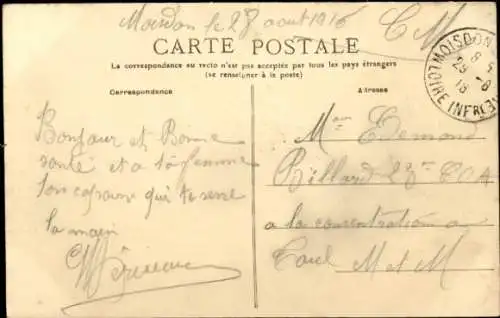 Moisdon le 28 aout 1916
C M
CARTE POSTALE
La correspondance au recto n'est pas acceptée par tous les pays étrangers
(se renseigner à la poste)
Correspondance
Adresse
MOISDON
LOIRE INFRE
Bonjour et Bonne
santé et a ta femme
ton copain qui te serre
la main
Edemond
Billard
a la concentration a
Toul M et M